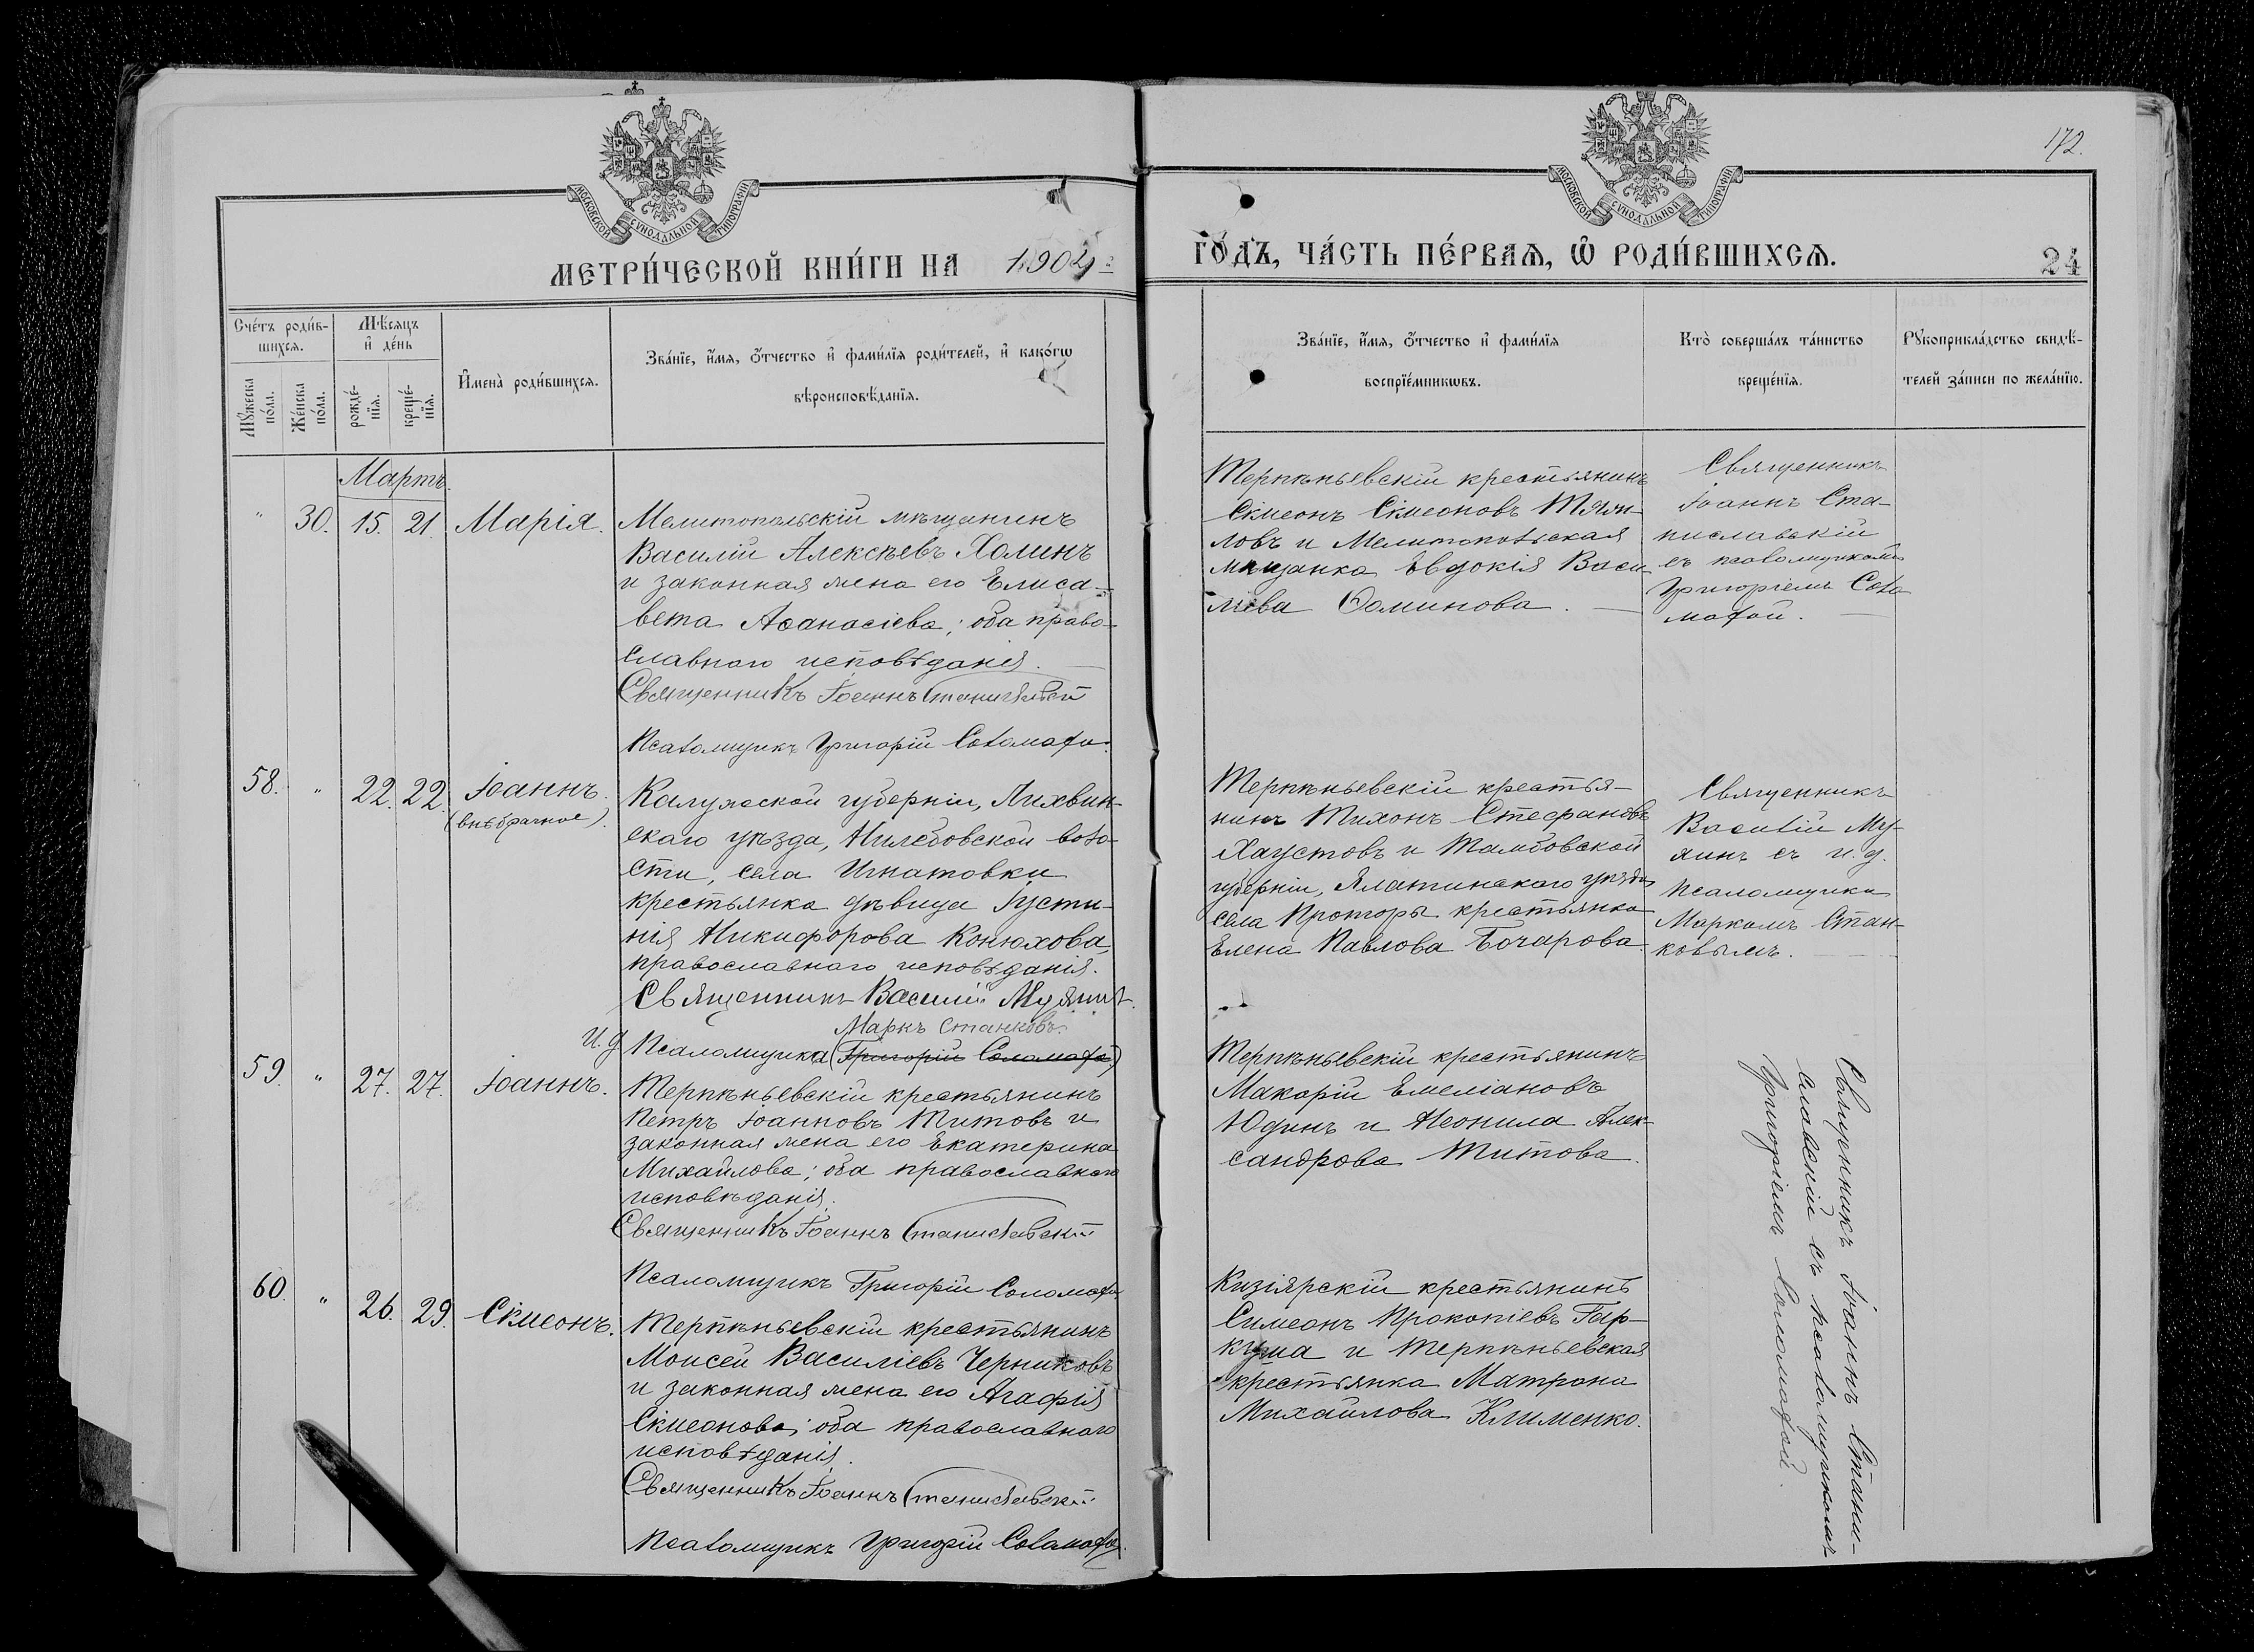 172.
МОСКОВСКОЙ СУНОДАЛЬНОЙ ТИПОГРАФІИ
МОСКОВСКОЙ СУНОДАЛЬНОЙ ТИПОГРАФІИ
МЕТРИ́ЧЕСКОЙ КНИ́ГИ НА 1904
ГО́ДЪ, ЧА́СТЬ ПЕ́РВАѦ, Ѽ РОДИ́ВШИХСѦ.
24
Сче́тъ роди́в-
шихсѧ.
Мѣ́сѧцъ
и҆ де́нь
Мꙋ́жеска
по́ла.
Же́нска
по́ла.
рожде́-
нїѧ.
креще́-
нїѧ.
И҆мена̀ роди́вшихсѧ.
Зва́нїе, и҆́мѧ, ѻ҆́тчество и҆ фами́лїѧ роди́телей, и҆ како́гѡ
вѣроисповѣ́данїѧ.
Зва́нїе, и҆́мѧ, ѻ҆́тчество и҆ фами́лїѧ
воспрїе́мникѡвъ.
Кто̀ соверша́лъ та́инство
креще́нїѧ.
Рꙋкоприкла́дство свидѣ́-
телей за́писи по жела́нїю.
Мартъ.
" 30. 15. 21. Марія.
Мелитопольскій мѣщанинъ
Василій Алексѣевъ Халинъ
и законная жена его Елиса-
вета Аѳанасіева; оба право-
славного исповѣданія.
Священникъ Іоаннъ Станиславскій
Псаломщикъ Григорій Соломаха.
Терпѣньевскій крестьянинъ
Сімеонъ Сімеоновъ Тяги-
ловъ и Мелитопольская
мѣщанка Евдокія Васи-
ліева Ѳоминова.
Священникъ
Іоаннъ Ста-
ниславскій
съ псаломщикомъ
Григоріемъ Соло-
махой.
58. " 22. 22. Іоаннъ.
(внѣбрачное).
Калужской губерніи, Лихвин-
скаго уѣзда, воло-
сти, села Игнатовки
крестьянка дѣвица Іусти-
нія Никифорова Конюхова,
православнаго исповѣданія.
Священникъ Василій Мужинъ.
Маркъ Станковъ.
И. д. Псаломщика (Григорій Соломаха)
Терпѣньевскій крестья-
нинъ Тихонъ Стефановъ
Хаустовъ и Тамбовской
губерніи, Елатинскаго уѣзда
села Проторы крестьянка
Елена Павлова Бочарова.
Священникъ
Василій Му-
жинъ съ и. д.
псаломщика
Маркомъ Стан-
ковымъ.
59. " 27. 27. Іоаннъ.
Терпѣньевскій крестьянинъ
Петръ Іоанновъ Титовъ и
законная жена его Екатерина
Михайлова; оба православного
исповѣданія.
Священникъ Іоаннъ Станиславскій
Псаломщикъ Григорій Соломаха
Терпѣньевскій крестьянинъ
Макарій Емеліановъ
Юдинъ и Неонила Алек-
сандрова Титова.
60. " 26. 29. Сімеонъ.
Терпѣньевскій крестьянинъ
Моисей Василіевъ Черниковъ
и законная жена его Агафія
Сімеонова; оба православного
исповѣданія.
Священникъ Іоаннъ Станиславскій
Псаломщикъ Григорій Соломаха.
Кизіярскій крестьянинъ
Симеонъ Прокопіевъ Гар-
куша и Терпѣньевская
крестьянка Матрона
Михайлова Клименко.
Священникъ Іоаннъ Стани-
славскій съ псаломщикомъ
Григоріемъ Соломахой.